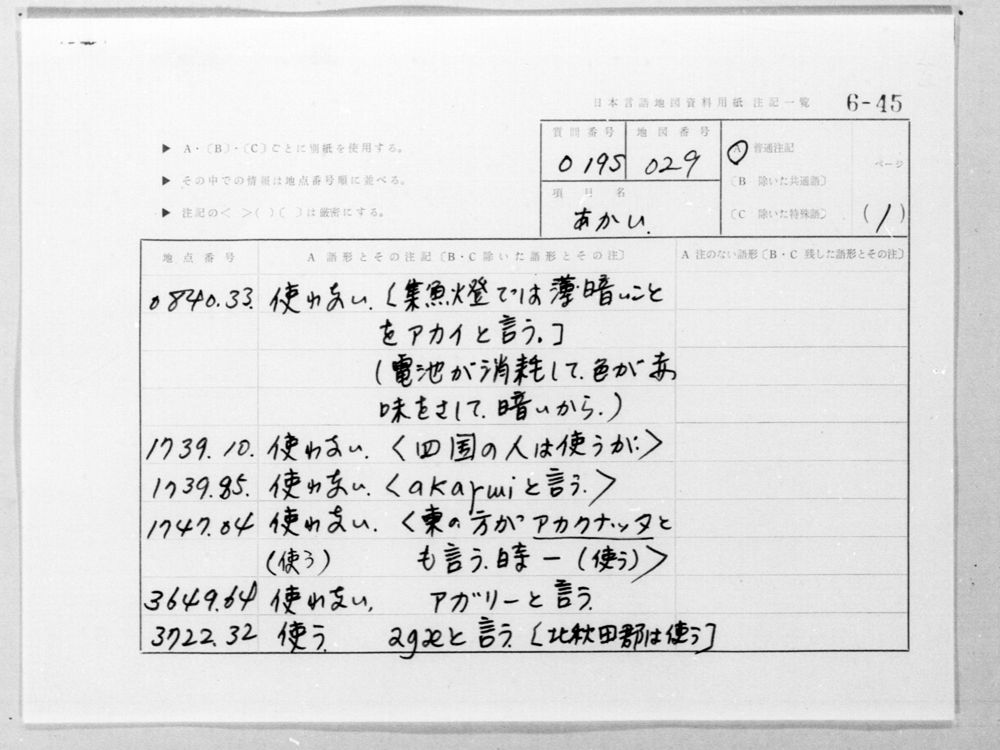 日本言語地図資料用紙 注記一覧 6-45
▶ A・〔B〕・〔C〕ごとに別紙を使用する。
▶ その中での情報は地点番号順に並べる。
▶ 注記の< >( )〔 〕は厳密にする。
質問番号 地図番号
0195 029
項目名
あかい.
A 普通注記
〔B 除いた共通語〕
〔C 除いた特殊語〕
ページ
(1)
地点番号 A 語形とその注記〔B・C 除いた語形とその注〕 A 注のない語形〔B・C 残した語形とその注〕
0840.33. 使わない.〔集魚燈では薄暗いこと
をアカイと言う.〕
(電池が消耗して.色が赤
味をさして.暗いから.)
1739.10. 使わない. <四国の人は使うが.>
1739.85. 使わない. <akaɾɯiと言う.>
1747.04 使わない. <東の方がアカクナッタと
(使う) も言う.時ー (使う)>
3649.64 使わない. アガリーと言う.
3722.32 使う. agæと言う.〔北秋田郡は使う〕